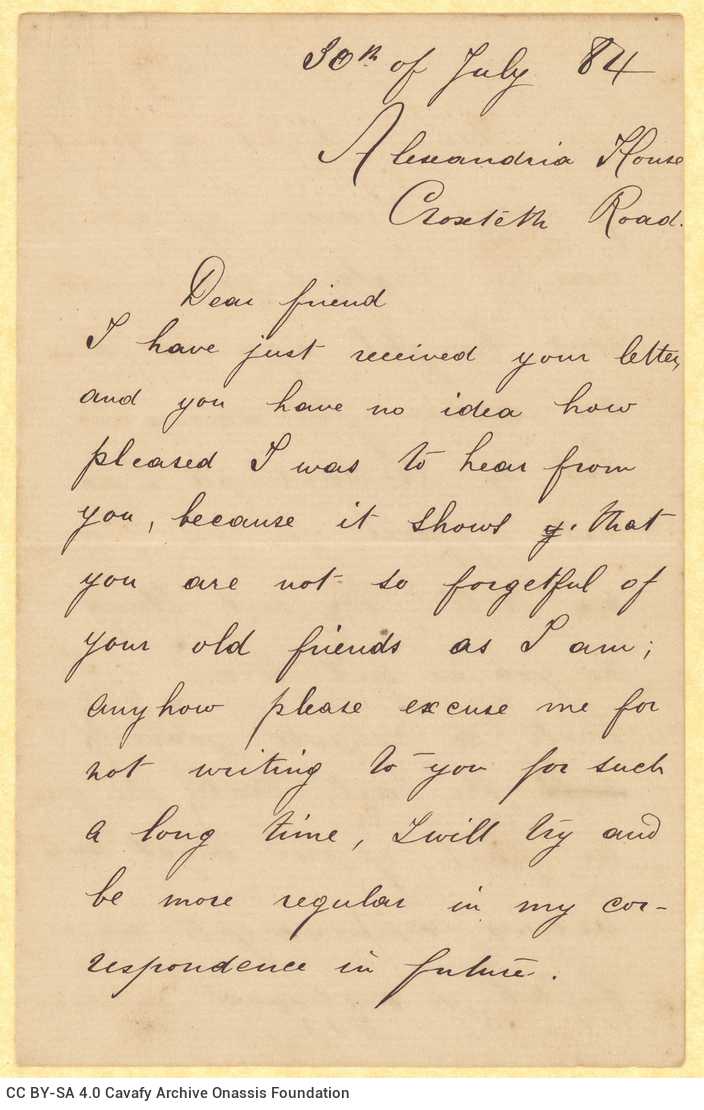 30th of July 84
Alexandria House
Croxteth Road.
Dear friend
I have just received your letter,
and you have no idea how
pleased I was to hear from
you, because it shows y. that
you are not so forgetful of
your old friends as I am;
anyhow please excuse me for
not writing to you for such
a long time, I will try and
be more regular in my cor-
respondence in future.
CC BY-SA 4.0 Cavafy Archive Onassis Foundation